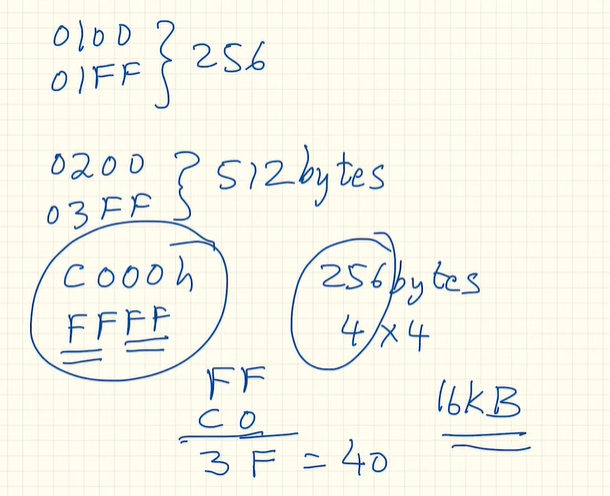 0100
01FF } 256
0200
03FF } 512bytes
C000h
FFFF
256bytes
4x4
FF
C0
3F = 40
16KB